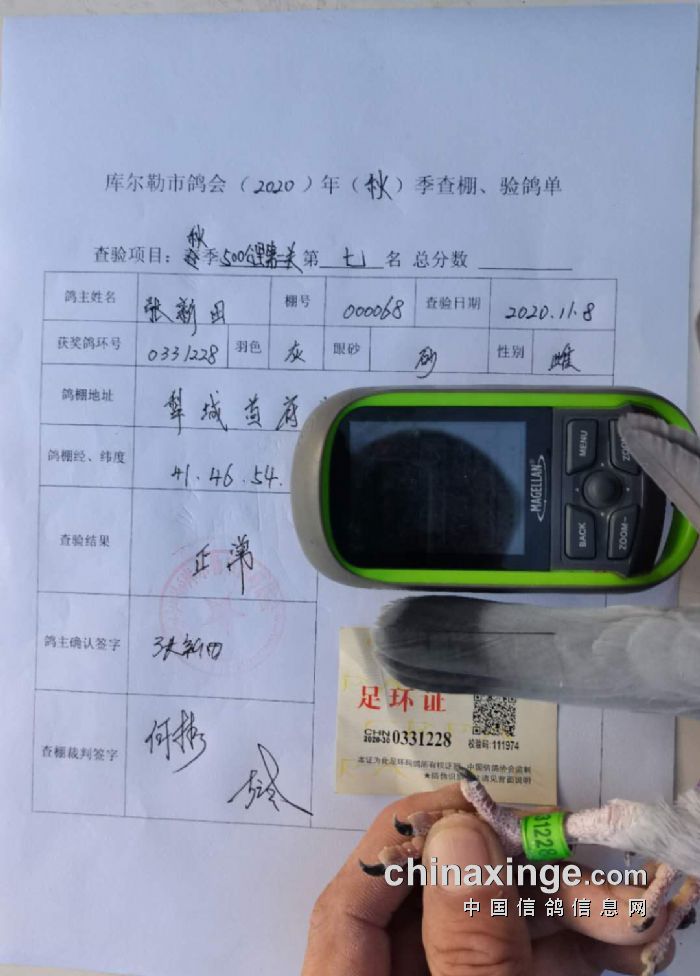 库尔勒市鸽会（2020）年（秋）季查棚、验鸽单
查验项目：秋季500公里 第 七 名 总分数
鸽主姓名 张新田 棚号 000068 查验日期 2020.11.8
获奖鸽环号 0331228 羽色 灰 眼砂 砂 性别 雌
鸽棚地址 犁城
鸽棚经、纬度 41.46.54.
查验结果 正常
鸽主确认签字 张新田
查棚裁判签字 何彬
MAGELLAN
MENU
ZOOM
BACK
ZOOM-
足环证
CHN
2020-30 0331228
校验码:111974
本证为此足环同鸽所有权证明
中国信鸽协会监制
请见背面说明
31228
chinaxinge.com
中国信鸽信息网